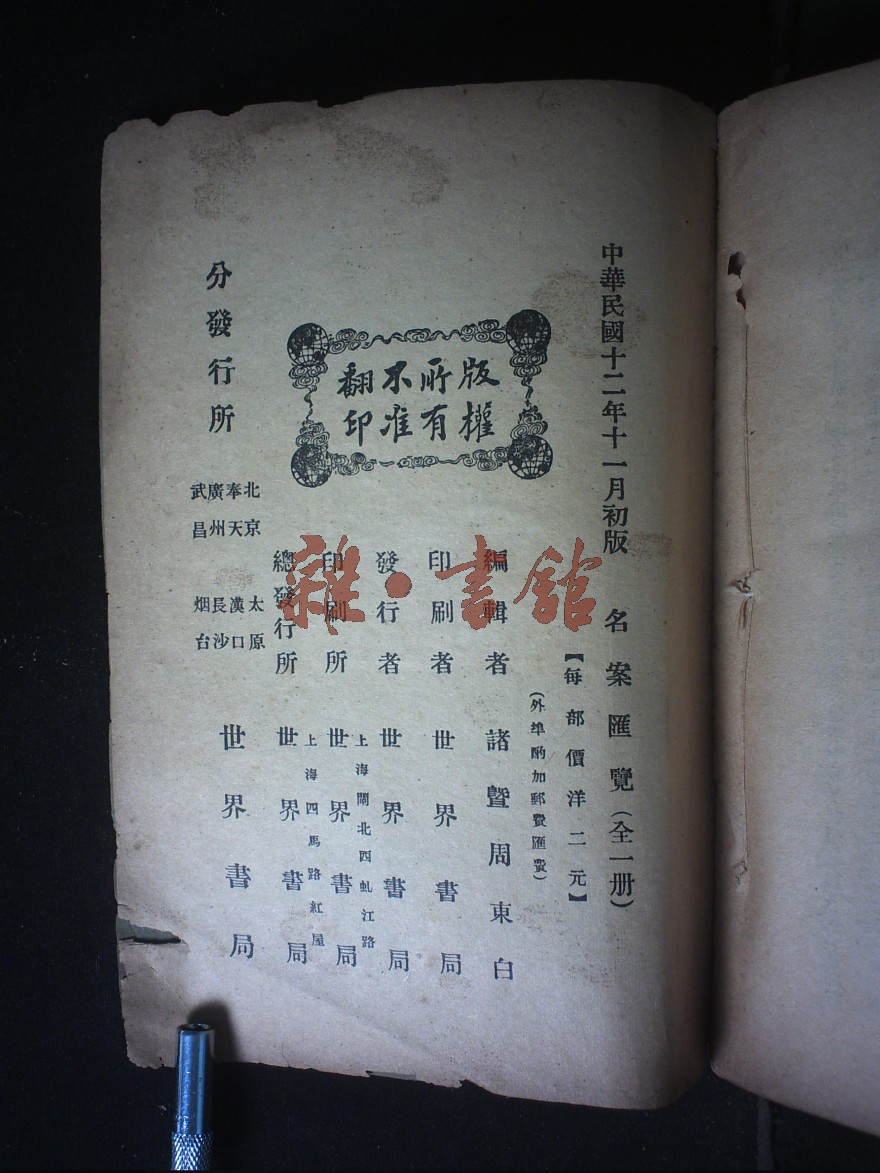 中華民國十二年十一月初版
名案匯覽（全一册）
【每部價洋二元】
（外埠酌加郵費匯費）
版權
所有
不准
翻印
編輯者 諸暨周東白
印刷者 世界書局
發行者 世界書局
上海閘北西虬江路
印刷所 世界書局
上海四馬路紅屋
總發行所 世界書局
分發行所
北京 太原
奉天 漢口
廣州 長沙
武昌 烟台
世界書局
雜·書館